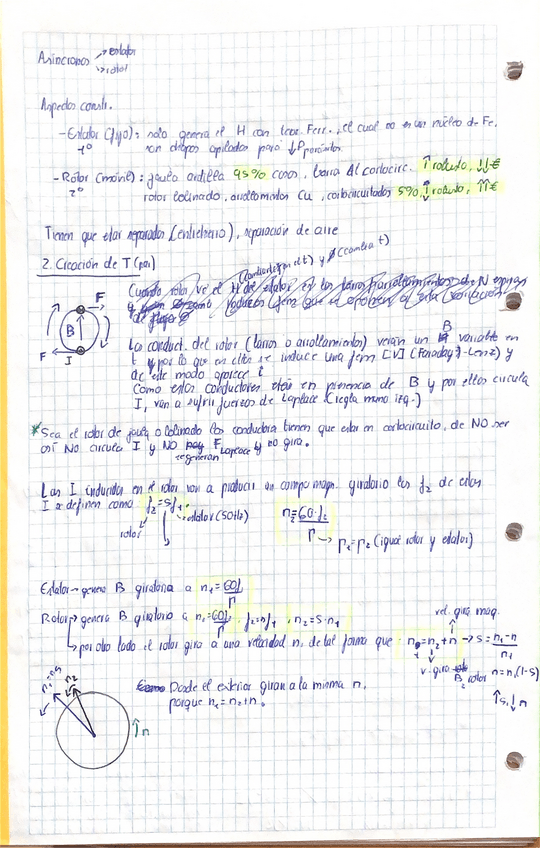 Asíncronos → estator
→ rotor
Aspectos constr.
- Estator (fijo): solo genera el H con Fe, el cual es un núcleo de Fe.
1º con chapas apiladas para ↓P
- Rotor (móvil): jaula ardilla 95% casos, barra Al cortocirc. ↑robusto, ↓↓€
2º rotor bobinado, arrollamientos Cu, cortocircuitados 5% ↓robusto, ↑↑€
Tienen que estar separados (entrehierro), separación de aire
2. Creación de T (par)
F
B
F
I
Los conduct. del rotor (barras o arrollamientos) verán un B variable en
t y por lo que en ellos se induce una fem [V] (Faraday-Lenz) y
de este modo aparece i
Como estos conductores están en presencia de B y por ellos circula
I, van a sufrir fuerzas de Laplace (regla mano izq.)
* Sea el rotor de jaula o bobinado los conductores tienen que estar en cortocircuito, de NO ser
así NO circula I y NO se generan F Laplace y no gira.
Las I inducidas en el rotor van a producir un campo magn. giratorio las f₂ de estas
I se definen como f₂=sf₁
rotor
→ estator (50Hz)
n₂=60·f₂/p
→ p₁=p₂ (igual rotor y estator)
Estator → genera B giratorio a n₁=60f₁/p
Rotor → genera B giratorio a n₂=60f₂/p f₂=sf₁, n₂=s·n₁
vel. gira maq.
↳ por otro lado el rotor gira a una velocidad n, de tal forma que: n₁=n₂+n → s=n₁-n/n₁
v. giro B₂ rotor n=n₁(1-s)
↑s, ↓n
n₁=ns
n₂
↑n
Desde el exterior giran a la misma n,
porque n₁=n₂+n.